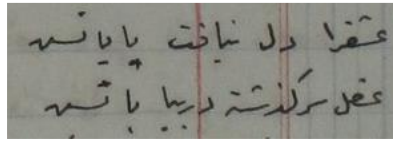 عشقرا دل نیافت پایانش
عقل سرگشته دربیابانش